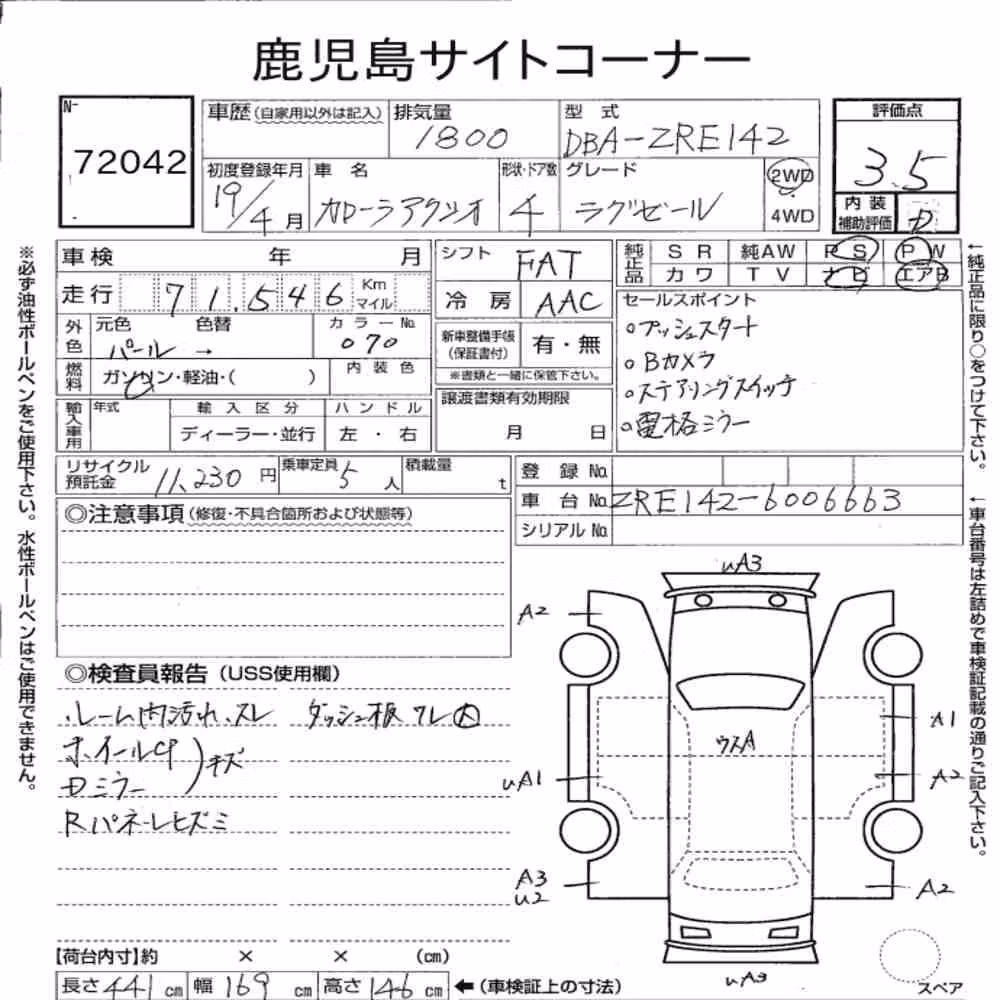 鹿児島サイトコーナー
No
72042
車歴(自家用以外は記入) 排気量 1800 型式 DBA-ZRE142
初度登録年月 19/4月 車名 カローラアクシオ 形状・ドア数 4 グレード ラグゼール 2WD 4WD
評価点 3.5
内装補助評価 D
車検 年 月
走行 71,546 Km マイル
外色 元色 パール → 色替 カラーNo. 070
燃料 ガソリン・軽油・( ) 内装色
輸入車用 年式 輸入区分 ディーラー・並行 ハンドル 左・右
シフト FAT
冷房 AAC
新車整備手帳(保証書付) 有・無
※書類と一緒に保管下さい。
譲渡書類有効期限
月 日
純正品 SR 純AW PS PW
カワ TV ナビ エアB
セールスポイント
○プッシュスタート
○Bカメラ
○ステアリングスイッチ
○電格ミラー
リサイクル預託金 11,230円 乗車定員 5人 積載量 t
登録No.
車台No. ZRE142-6006663
シリアルNo.
◎注意事項(修復・不具合箇所および状態等)
◎検査員報告(USS使用欄)
ルーム内汚れ、スレ ダッシュ板ワレ大
ホイールCP
Dミラー
)キズ
Rパネールヒズミ
uA3
A2
A1
ウスA
uA1
A2
A3
u2
A2
uA3
スペア
【荷台内寸】約 × × (cm)
長さ 441 cm 幅 169 cm 高さ 146 cm ←(車検証上の寸法)
※必ず油性ボールペンをご使用下さい。水性ボールペンはご使用できません。
←純正品に限り○をつけて下さい。
←車台番号は左詰めで車検証記載の通りご記入下さい。